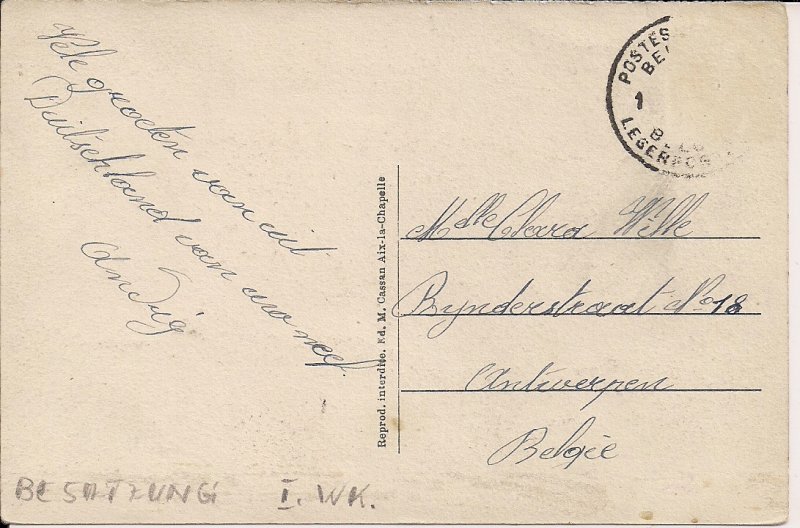 Vele groeten van uit
Duitschland van uw neef.
POSTES
BEL
1
LEGERPOS
Reprod. interdite. Ed. M. Cassan Aix-la-Chapelle
Mdlle Clara Wille
Rynderstraat No 18
Antwerpen
België
BESATZUNG I. WK.